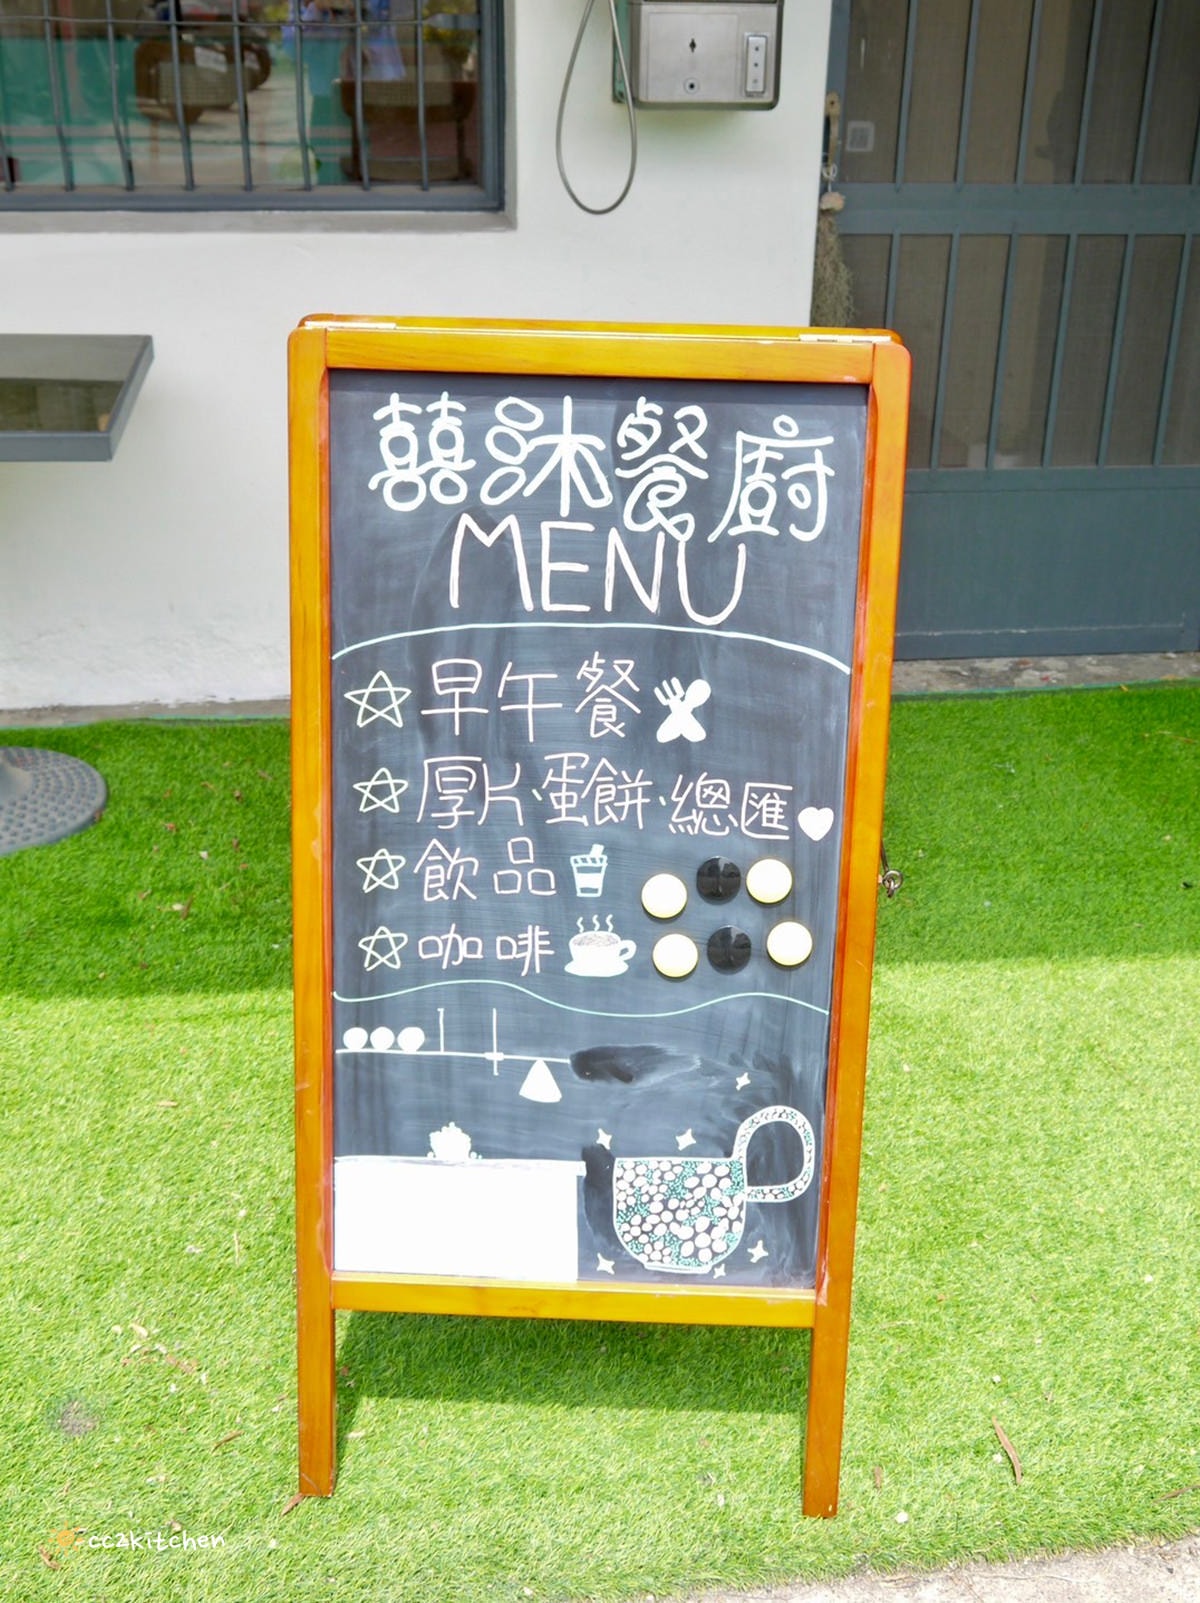 囍沐餐廚
MENU
早午餐
厚片·蛋餅·總匯
飲品
咖啡
cc2kitchen